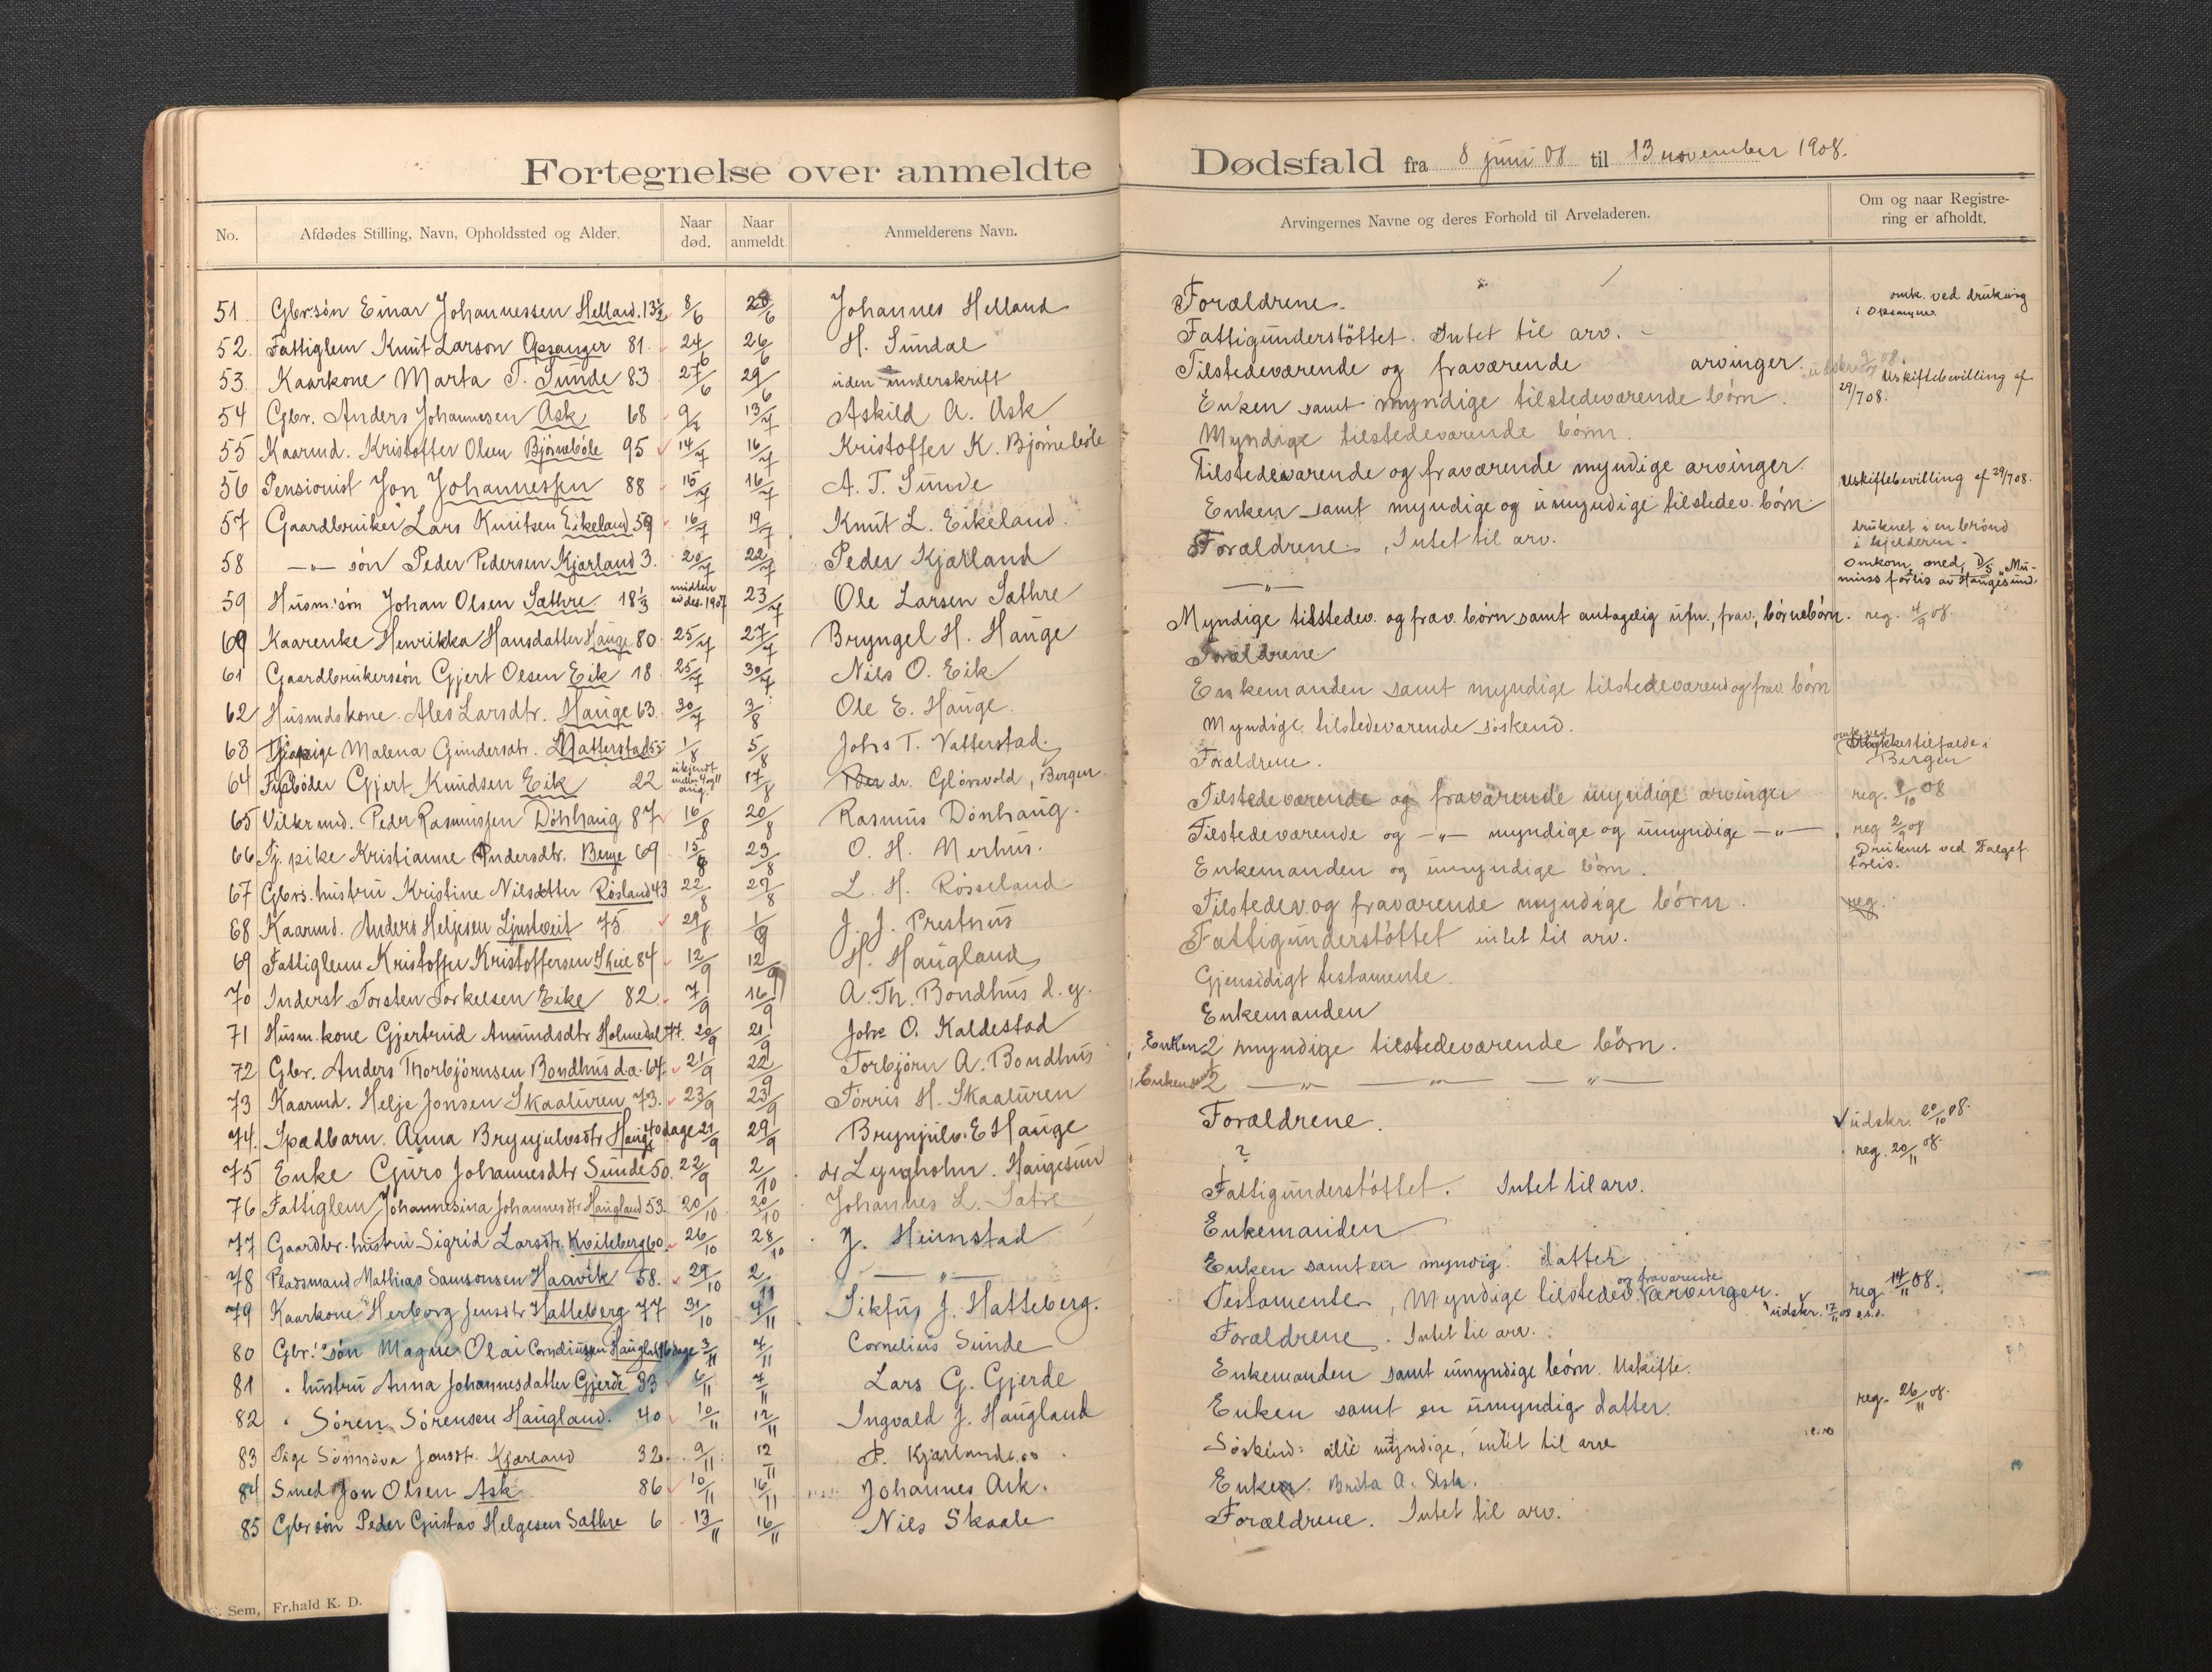 Fortegnelse over anmeldte Dødsfald fra 8 juni 08 til 13 november 1908.
No. Afdødes Stilling, Navn, Opholdssted og Alder. Naar død. Naar anmeldt Anmelderens Navn. Arvingernes Navne og deres Forhold til Arveladeren. Om og naar Registrering er afholdt.
51. Gbr.søn Einar Johannessen Helland. 13½ 8/6 /6 Johannes Helland Forældrene. omk. ved drukning i Opsangervn.
52. Fattiglem Knut Larson Opsanger 81. 24/6 26/6 H. Sundal Fattigunderstöttet. Intet til arv.
53. Kaarkone Marta T. Sunde 83 27/6 29/6 uden underskrift Tilstedeværende og fraværende arvinger.
54 Gbr. Anders Johannesen Ask 68 9/7 13/7 Askild A. Ask Enken samt myndige tilstedeværende børn. Uskiftebevilling af 29/7 08.
55 Kaarmd. Kristoffer Olsen Bjørnebøle 95 14/7 16/7 Kristoffer K. Bjørnebøle Myndige tilstedeværende børn.
56 Pensionist Jon Johannessen 88 15/7 16/7 A. T. Sunde Tilstedeværende og fraværende myndige arvinger.
57 Gaardbruker Lars Knutsen Eikeland 59 16/7 19/7 Knut L. Eikeland. Enken samt myndige og umyndige tilstedev. børn Uskiftebevilling af 29/7 08.
58 —"— søn Peder Pedersen Kjærland 3. 20/7 22/7 Peder Kjærland Forældrene. Intet til arv. druknet i en brønd i kjelderen.
59 Husm.søn Johan Olsen Sæthre 18⅓ midten av des. 1907 23/7 Ole Larsen Sæthre —"— Omkom med D/S "Mumuss" forlis av Haugesund.
60 Kaarenke Henrikka Hansdatter Hauge 80 25/7 27/7 Bryngel H. Hauge Myndige tilstedev. og frav. børn samt antagelig ufm., frav., børnebørn. reg. 4/9 08.
61 Gaardbrukersøn Gjert Olsen Eik 18 25/7 30/7 Nils O. Eik Forældrene
62 Husmdskone. Ales Larsdtr. Hauge 63. 30/7 3/8 Ole E. Hauge. Enkemanden samt myndige tilstedeværend og frav børn
63 Malena Gundersdtr. Vatterstad 55 1/8 5/8 Johs T. Vatterstad. Myndige tilstedeværende søskend.
64 Fyrbøder Gjert Knudsen Eik 22 ukjendt mellem 4 og 11 aug. 17/8 dr. Glørsvold, Bergen. Forældrene. omk. ved Ulykkestilfælde i Bergen
65 Vilkrmd. Peder Rasmussen Dønhaug 87 16/8 20/8 Rasmus Dønhaug. Tilstedeværende og fraværende myndige arvinger reg. /10 08
66 Tj. pike Kristianne Andersdtr. Berge 69 15/8 23/8 O. H. Nerhus. Tilstedeværende og —"— myndige og umyndige —"— reg 2/9 08
67 Gbrs. hustru Kristine Nilsdtter Røsland 43 22/8 27/8 L. H. Rösseland Enkemanden og umyndige børn. Druknet ved forlis.
68 Kaarmd. Anders Heljesen Ljustveit 75 29/8 1/9 J. J. Prestnus Tilstedev. og fraværende myndige børn. reg.
69 Fattiglem Kristoffer Kristoffersen Skeie 84 12/9 12/9 H. Haugland Fattigunderstöttet intet til arv.
70 Inderst Torsten Torkelsen Eike 82 7/9 16/9 A. Th. Bondhus d. y. Gjensidigt testamente.
71 Husm.kone Gjertrud Amundsdtr Holmedal 77. 20/9 21/9 Johs O. Kaldestad Enkemanden
72 Gbr. Anders Thorbjørnsen Bondhus d.æ. 64. 21/9 22/9 Torbjørn A. Bondhus Enken 2 myndige tilstedeværende børn.
73 Kaarmd. Helje Jonsen Skaaluren 73. 23/9 23/9 Torris H. Skaaluren Enken samt 2 —"— —"— —"—
74. Spædbarn. Anna Brynjulvsdtr Hauge 40 dage 21/9 29/9 Brynjulv E Hauge Forældrene. udskr. 20/10 08.
75 Enke Guro Johannesdtr Sunde 50. 22/9 2/10 dr Lyngholm. Haugesun ? reg. 20/11 08.
76 Fattiglem Johannesina Johannesdtr Haugland 53. 20/10 20/10 Johannes L. Sætre Fattigunderstöttet. Intet til arv.
77 Gaardbr. hustru Sigrid Larsdtr. Kviteberg 60. 26/10 28/10 J. Heimstad Enkemanden
78 Pladsmand Mathias Samsonsen Haavik 58. 29/10 2/11 —"— Enken samt en myndig datter
79 Kaarkone Herborg Jensdtr Hatteberg 77 31/10 4/11 Sikfus J. Hatteberg. Testamente, Myndige tilstedev. og fraværende arvinger. udskr. 17/11 08 reg. 14/11 08.
80 Gbr. søn Magne Olai Corneliussen Haugland 16 dage 3/11 7/11 Cornelius Sunde Forældrene. Intet til arv.
81 " hustru Anna Johannesdatter Gjerde 33 6/11 7/11 Lars G. Gjerde Enkemanden samt umyndige børn. Uskifte.
82 " Sören Sörensen Haugland. 40 10/11 12/11 Ingvald J. Haugland Enken samt en umyndig datter. reg. 26/11 08.
83 Pige Sønnøva Jonsdtr. Kjærland 32. 9/11 12/11 P. Kjærland Søskend: alle myndige, intet til arv
84 Smed Jon Olsen Ask 86 10/11 16/11 Johannes Ask. Enken. Brita A. Ask.
85 Gbr søn Peder Gustav Helgesen Sæthre 6 13/11 16/11 Nils Skaale Forældrene. Intet til arv.
Sem, Fr.hald K. D.